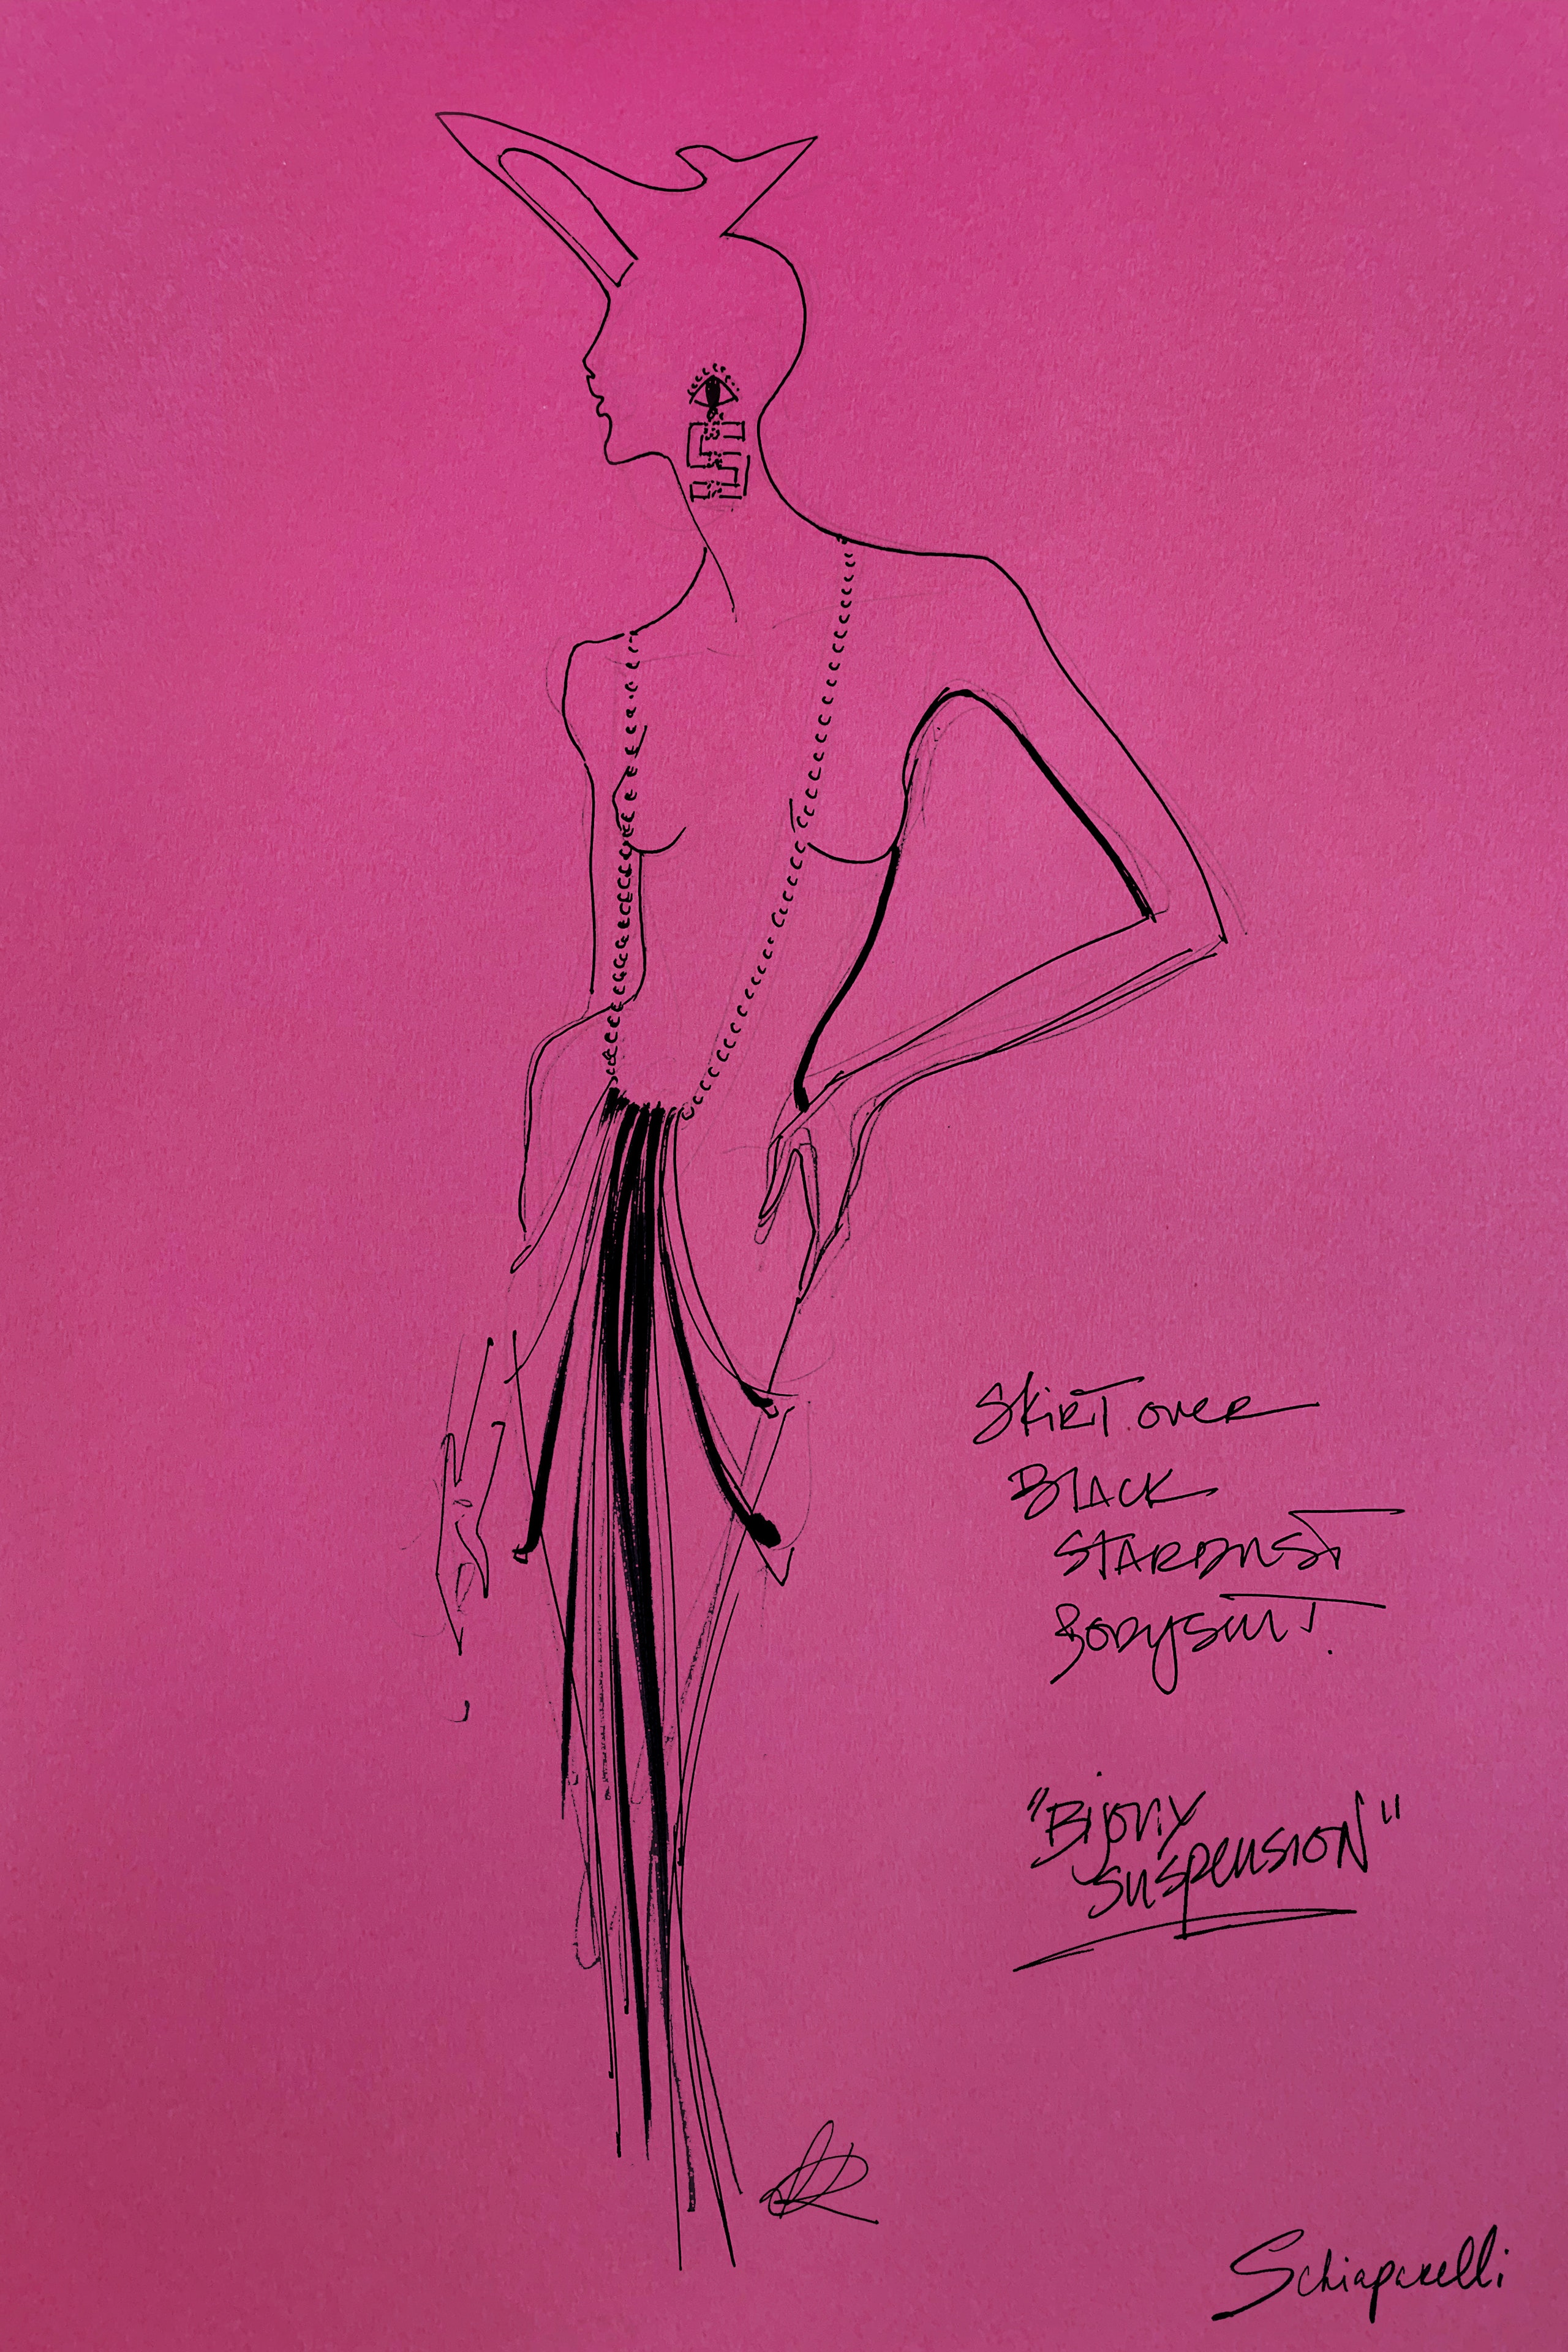 SKIRT OVER
BLACK
STARDUST
BODYSUIT.
"BIJOUX
SUSPENSION"
Schiaparelli